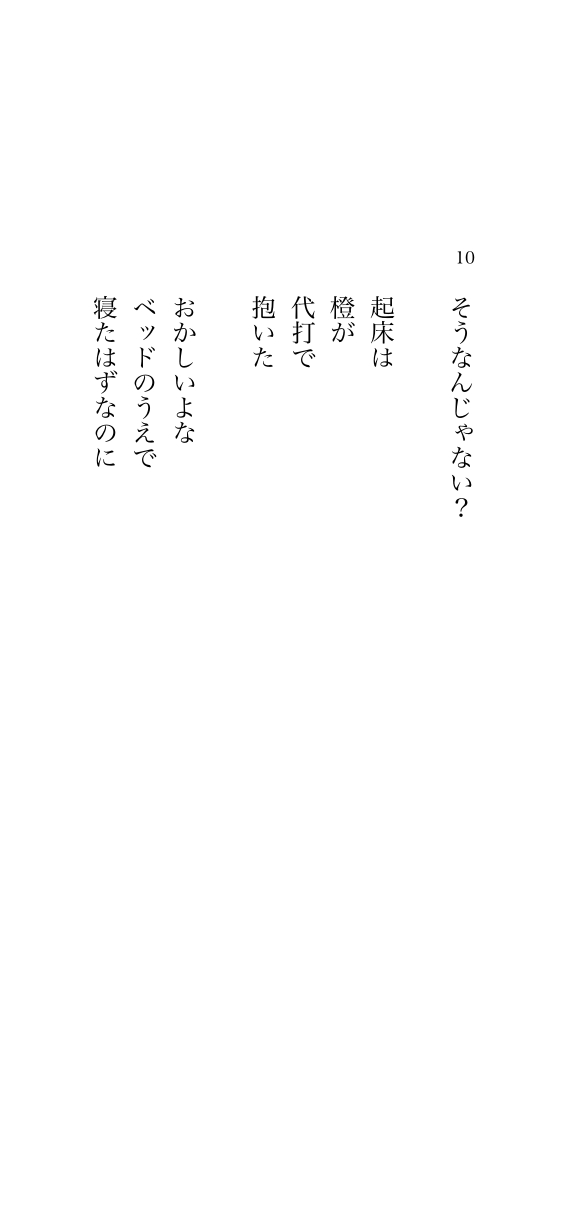 10
そうなんじゃない？
起床は
橙が
代打で
抱いた
おかしいよな
ベッドのうえで
寝たはずなのに